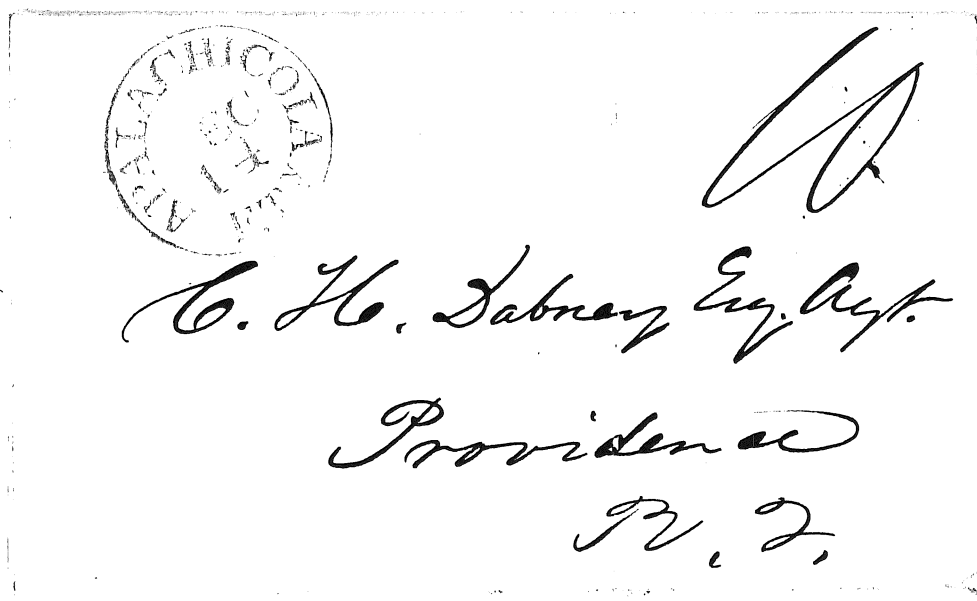 APALACHICOLA
10
C. H. Dabney Esq. Agt.
Providence
R. I.